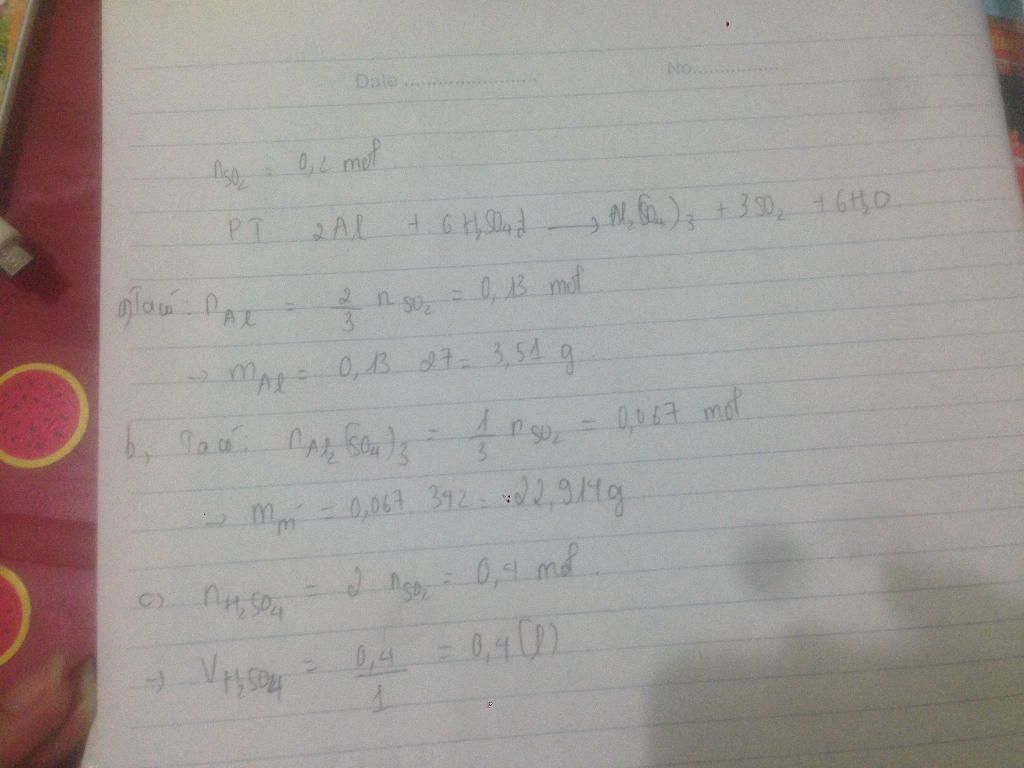 Date ........................ No................
nSO2 = 0,2 mol
PT 2Al + 6H2SO4đ → Al2(SO4)3 + 3SO2 + 6H2O
a) Ta có: nAl = 2/3 nSO2 = 0,13 mol
→ mAl = 0,13 27 = 3,51 g
b, Ta có: nAl2(SO4)3 = 1/3 nSO2 = 0,067 mol
→ mm' = 0,067 342 = 22,914g
c) nH2SO4 = 2 nSO2 = 0,4 mol
→ VH2SO4 = 0,4/1 = 0,4 (l)